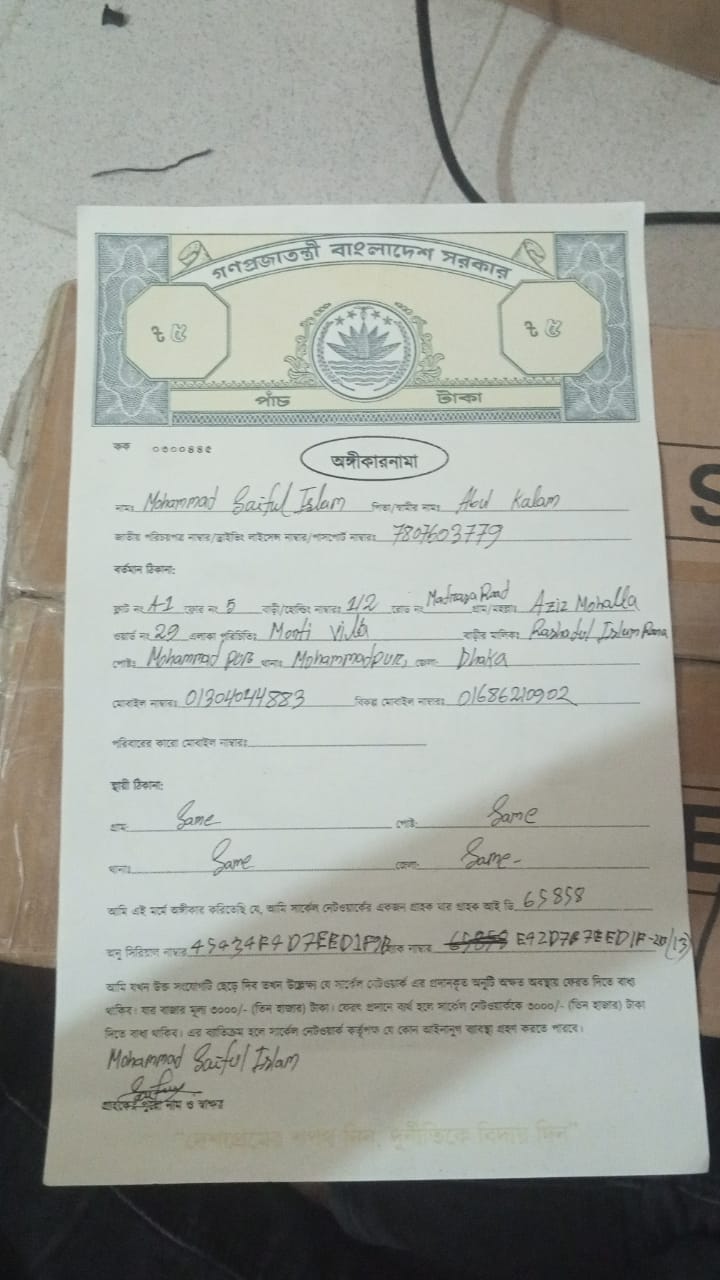 গণপ্রজাতন্ত্রী বাংলাদেশ সরকার
৳ ৫ ৳ ৫
পাঁচ টাকা
কক ০৩০০৪৪৫
অঙ্গীকারনামা
নামঃ Mohammad Saiful Islam পিতা/স্বামীর নামঃ Abul Kalam
জাতীয় পরিচয়পত্র নাম্বার/ড্রাইভিং লাইসেন্স নাম্বার/পাসপোর্ট নাম্বারঃ 7807603779
বর্তমান ঠিকানা:
ফ্লাট নং A-1 ফ্লোর নং 5 বাড়ী/হোল্ডিং নাম্বারঃ 1/2 রোড নং Madrasa Road গ্রাম/মহল্লাঃ Aziz Mohalla
ওয়ার্ড নং 29 এলাকা পরিচিতিঃ Monti Villa বাড়ীর মালিকঃ Rashadul Islam Rana
পোষ্টঃ Mohammad pur থানাঃ Mohammadpur, জেলাঃ Dhaka
মোবাইল নাম্বারঃ 01304044883 বিকল্প মোবাইল নাম্বারঃ 01686210902
পরিবারের কারো মোবাইল নাম্বারঃ
স্থায়ী ঠিকানা:
গ্রাম: Same পোষ্ট: Same
থানাঃ Same জেলা: Same-
আমি এই মর্মে অঙ্গীকার করিতেছি যে, আমি সার্কেল নেটওয়ার্কের একজন গ্রাহক যার গ্রাহক আই ডি 65858
অনু সিরিয়াল নাম্বার 45434F4D7EED1F9B ম্যাক নাম্বার E42D7B7EED1F-20 (13)
আমি যখন উক্ত সংযোগটি ছেড়ে দিব তখন উল্লেখ্য যে সার্কেল নেটওয়ার্ক এর প্রদানকৃত অনুটি অক্ষত অবস্থায় ফেরত দিতে বাধ্য
থাকিব। যার বাজার মূল্য ৩০০০/- (তিন হাজার) টাকা। ফেরৎ প্রদানে ব্যর্থ হলে সার্কেল নেটওয়ার্ককে ৩০০০/- (তিন হাজার) টাকা
দিতে বাধ্য থাকিব। এর ব্যতিক্রম হলে সার্কেল নেটওয়ার্ক কর্তৃপক্ষ যে কোন আইনানুগ ব্যবস্থা গ্রহণ করতে পারবে।
Mohammad Saiful Islam
গ্রাহকের পুরো নাম ও স্বাক্ষর
"দেশপ্রেমের শপথ নিন, দুর্নীতিকে বিদায় দিন"